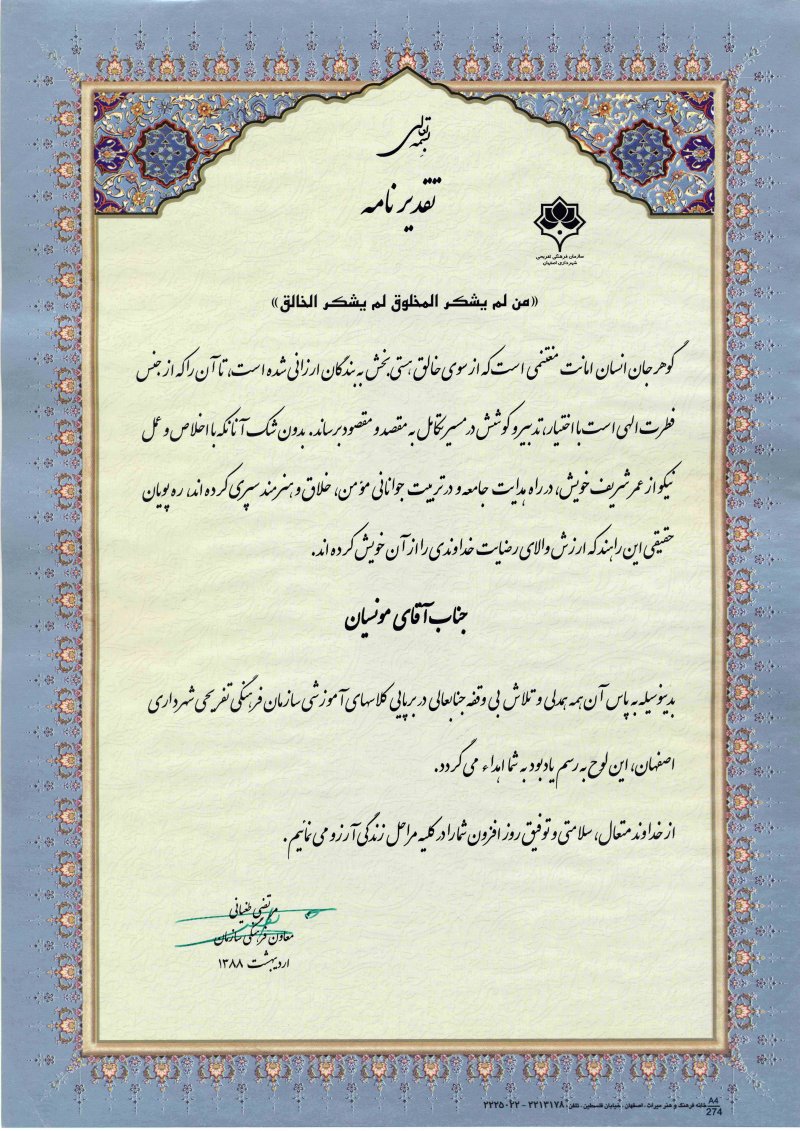 بسمه تعالی
تقدیر نامه
سازمان فرهنگی تفریحی
شهرداری اصفهان
«من لم یشکر المخلوق لم یشکر الخالق»
گوهر جان انسان امانت مغتنمی است که از سوی خالق هستی بخش به بندگان ارزانی شده است، تا آن را که از جنس
فطرت الهی است با اختیار، تدبیر و کوشش در مسیر تکامل به مقصد و مقصود برساند. بدون شک آنانکه با اخلاص و عمل
نیکو از عمر شریف خویش، در راه هدایت جامعه و در تربیت جوانانی مؤمن، خلاق و هنرمند سپری کرده اند، ره پویان
حقیقی این راهند که ارزش والای رضایت خداوندی را از آن خویش کرده اند.
جناب آقای مونسیان
بدینوسیله به پاس آن همه همدلی و تلاش بی وقفه جنابعالی در برپایی کلاسهای آموزشی سازمان فرهنگی تفریحی شهرداری
اصفهان، این لوح به رسم یادبود به شما اهداء می گردد.
از خداوند متعال، سلامتی و توفیق روز افزون شما را در کلیه مراحل زندگی آرزو می نمائیم.
مرتضی طغیانی
معاون فرهنگی سازمان
اردیبهشت ۱۳۸۸
خانه فرهنگ و هنر میراث . اصفهان . خیابان فلسطین . تلفن: ۲۲۱۳۱۷۸ - ۲۲۲۵۰۲۲
A4
274